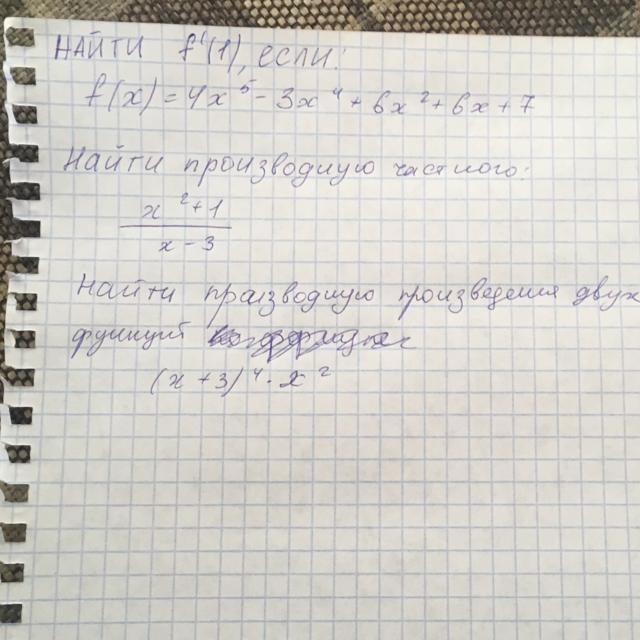 НАЙТИ f'(1), ЕСЛИ:
f(x) = 4x⁵ - 3x⁴ + 6x² + 6x + 7
Найти производную частного:
x² + 1
x - 3
Найти праизводную произведения двух
функций
(x + 3)⁴ · x²